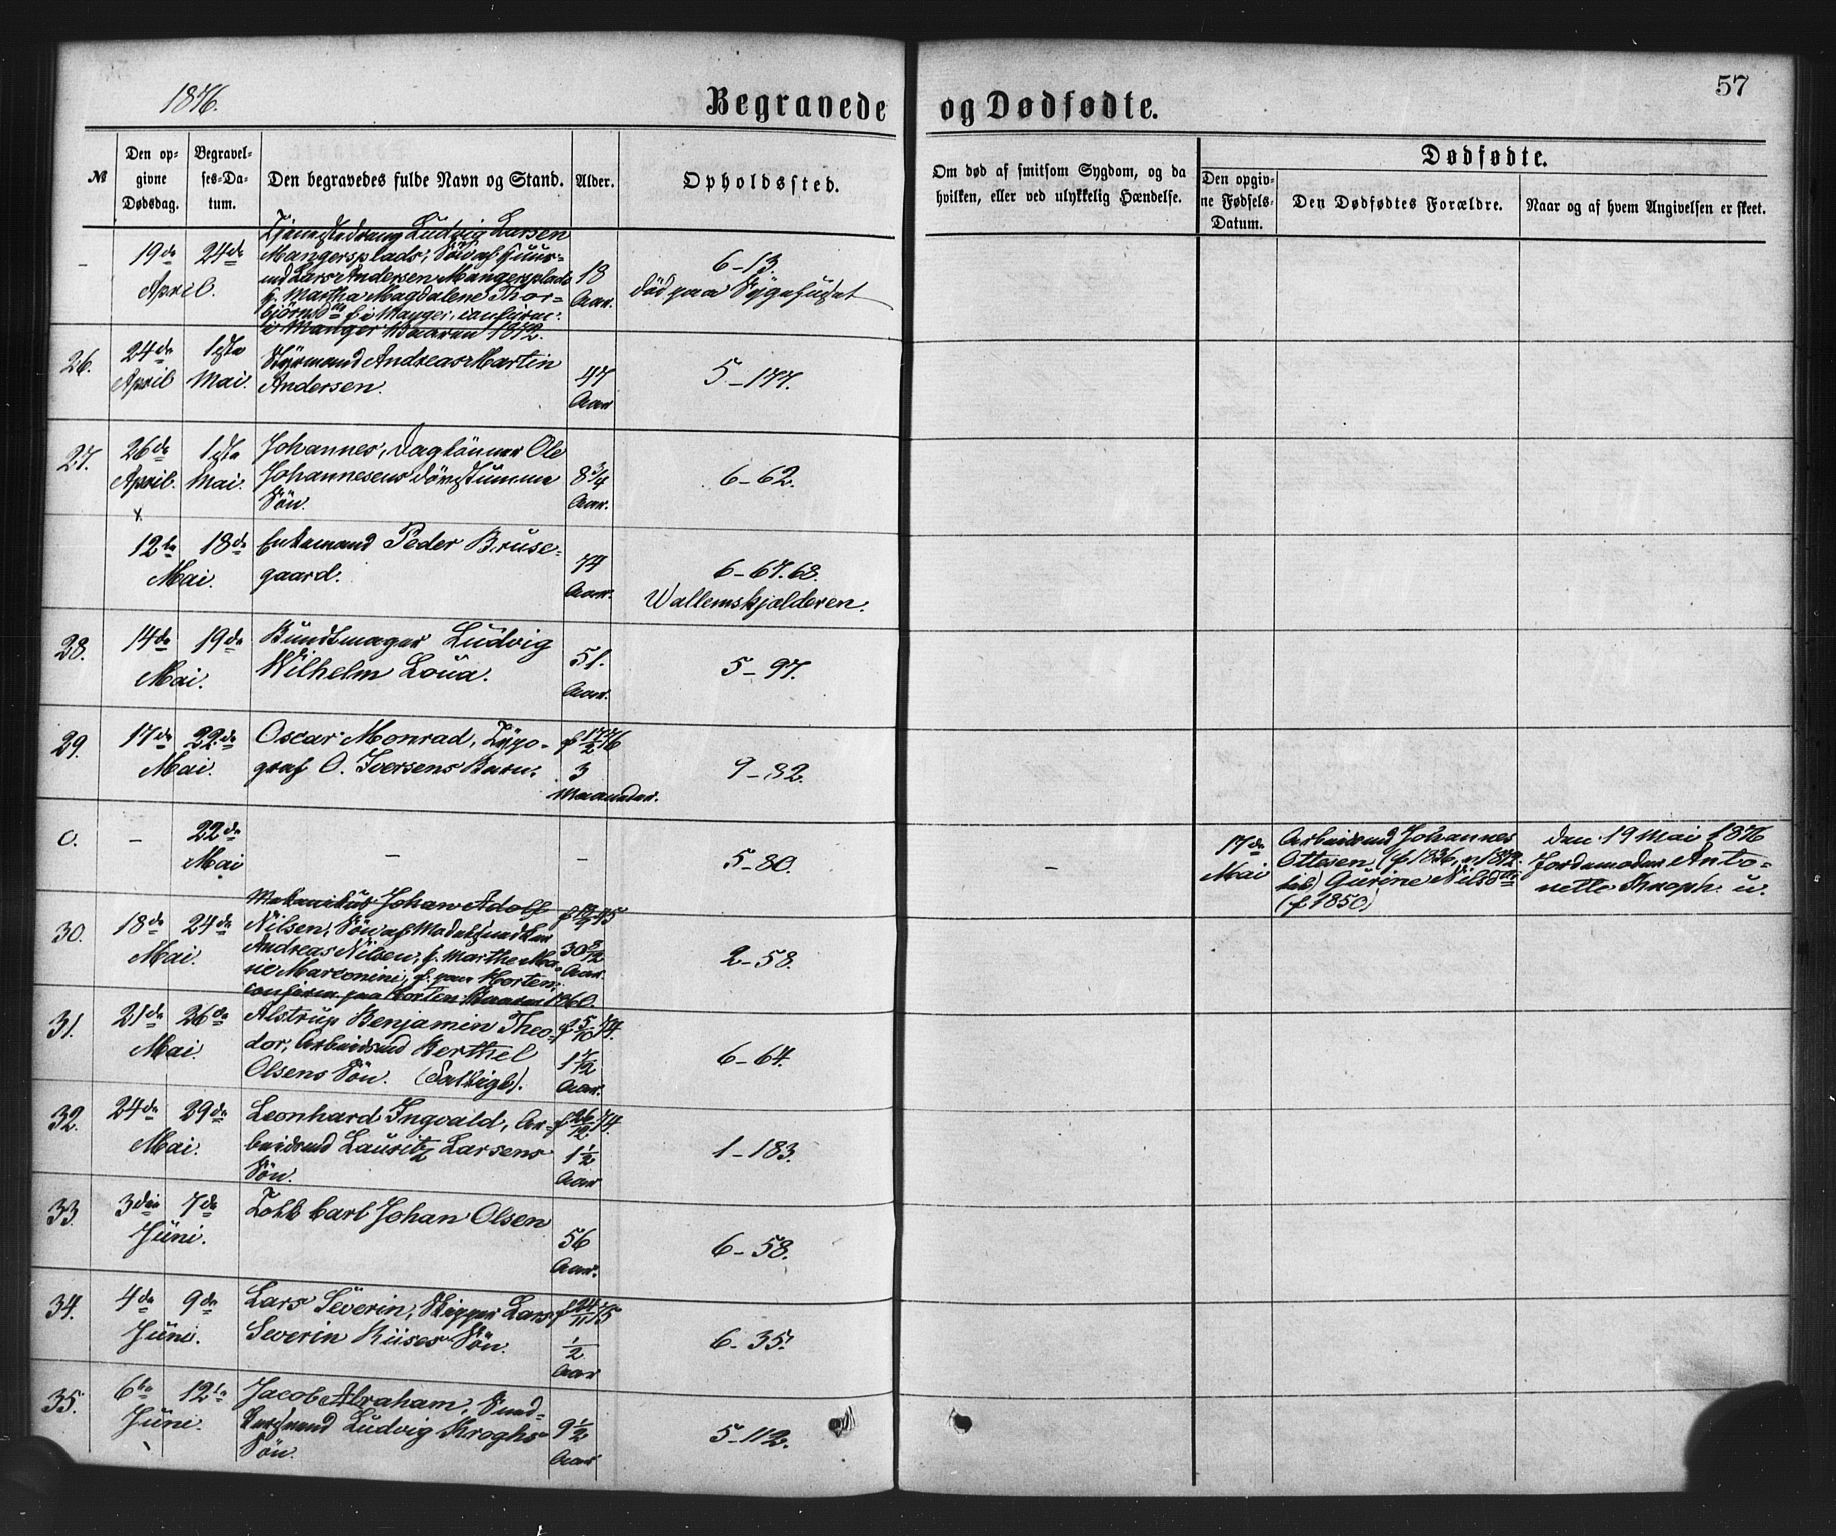 1876.
Begravede og Dødfødte.
57
№
Den op-
givne
Dødsdag.
Begravel-
ses-Da-
tum.
Den begravedes fulde Navn og Stand.
Alder.
Opholdssted.
Om død af smitsom Sygdom, og da
hvilken, eller ved ulykkelig Hændelse.
Dødfødte.
Den opgiv-
ne Fødsels-
Datum.
Den Dødfødtes Forældre.
Naar og af hvem Angivelsen er skeet.
-
19de 24de
April.
Tjenestedreng Ludvig Larsen
Mangersplads, Søn af Huus-
md Lars Andersen Mangersplads
f. Martha Magdalene Thor-
bjørns f. i Manger, confirm:
i Manger Vaaren 1872.
18
Aar.
6-13.
død paa Sygehuset
26.
24de
April
1ste
Mai.
Styrmand Andreas Martin
Andersen.
47
Aar
5-177.
27.
26de
April.
1ste
Mai.
Johannes, Dagлønner Ole
Johannesens døvstumme
Søn.
8 3/4
Aar.
6-62.
x.
12te 18de
Mai.
Enkemand Peder Bruse-
gaard.
74
Aar.
6-67.68.
Wallemskjælderen.
28.
14de 19de
Mai.
Bundtmager Ludvig
Wilhelm Loua.
51.
Aar.
5-97.
29.
17de 22de
Mai.
Oscar Monrad, Typo-
graf O. Iversens Barn.
f 17/2 76
3
Maaneder.
9-32.
0.
-
22de
Mai
-
-
5-80.
-
17de
Mai
Arbeidsmd Johannes
Ottesen (f. 1836, 1872
) Gurine Nilsdtr
(f. 1850)
den 19 Mai 1876
Jordemoder Anto-
nette Knoph. u.
30.
18de 24de
Mai.
Mekanikus Johan Adolf
Nilsen, Søn af Modelsnedker
Andreas Nilsen, f. Marthe Ma-
rie Marconini, f. paa Horten,
confirm paa Horten Vaaren 1860.
30 8/12
Aar.
2-58.
31.
21de 26de
Mai.
Alstrup Benjamin Theo-
dor, Arbeidsmd Berthel
Olsens Søn. (Fattigb).
f 5/10 74.
1 7/12
Aar.
6-64.
32.
24de 29de
Mai.
Leonhard Ingvald, Ar-
beidsmd Lauritz Larsens
Søn.
f 26/12 74.
1 1/2
Aar
1-183.
33
3die 7de
Juni.
Tolk Carl Johan Olsen
56
Aar.
6-58.
34.
4de 9de
Juni.
Lars Severin, Skipper Lars
Severin Riises Søn.
f 24/11 75
1/2
Aar
6-35.
35.
6te 12te
Juni.
Jacob Abraham, Sund-
Ludvig Kroghs
Søn.
9 1/2
Aar
5-112.